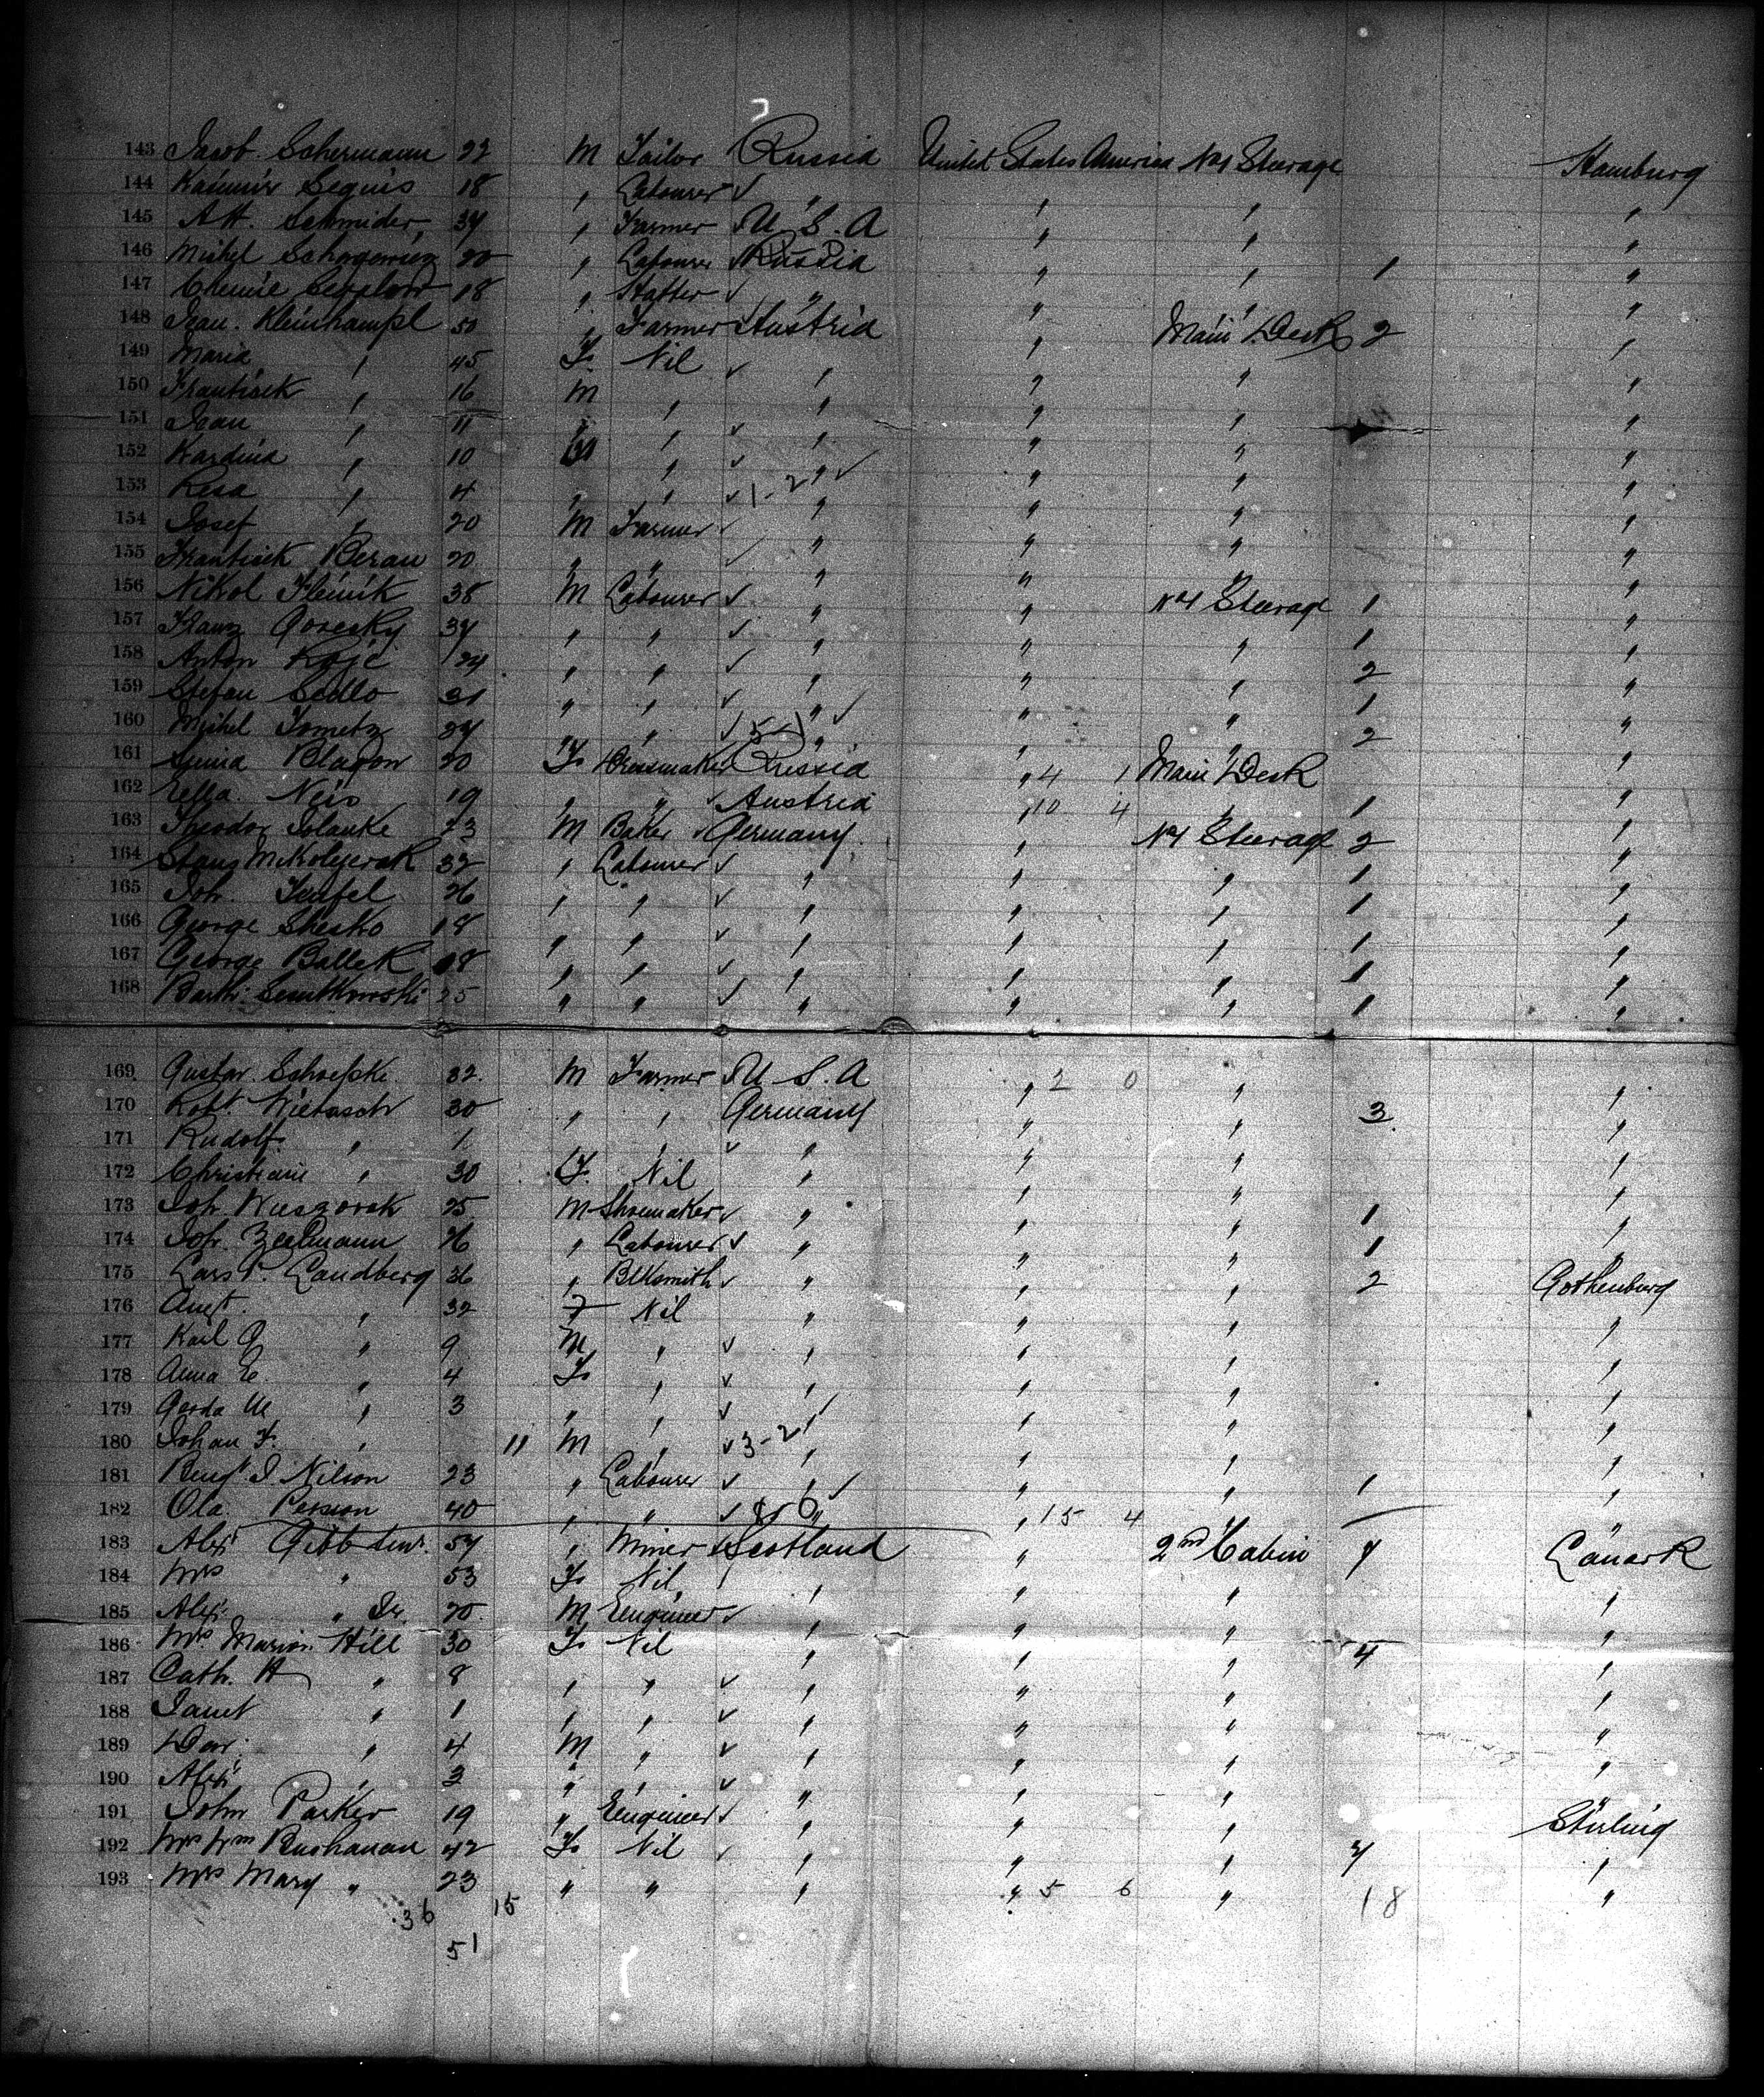 143 Jacob Schermann 22 M Tailor Russia United States America No 1 Steerage Hamburg
144 Kasimir Seguis 18 " Labourer ✓ " " " "
145 Schmider, 34 " Farmer U. S. A " " "
146 Michel 20 " Labourer ✓ Russia " " 1 "
147 18 " ✓ " " " "
148 Jean. Kleinhampl 50 " Farmer Austria " Main Deck 2 "
149 Maria " 45 F. Nil ✓ " " " "
150 Frantisek " 16 M " " " " "
151 Jean " 11 " " ✓ " " " "
152 Kardina " 10 " ✓ " ✓ " " "
153 Resa " 4 " " ✓ 1-2 " " " "
154 Josef " 20 M Farmer ✓ " " " "
155 Frantisek Beran 20 " " ✓ " " " "
156 Nikol 38 M Labourer ✓ " " No 1 Steerage 1 "
157 Franz Goresky 34 " " ✓ " " " 1 "
158 Anton 24 " " ✓ " " " 2 "
159 Stefan Sedlo 31 " " ✓ " ✓ " " 1 "
160 Michel 24 " " ✓ 5-1 " " " 2 "
161 Blagon 20 F Dressmaker Russia " 4 1 Main Deck "
162 Ella. Neis 19 " " ✓ Austria " 10 4 " 1 "
163 Theodor 23 M Baker ✓ Germany. " No 1 Steerage 2 "
164 32 " Labourer ✓ " " " 1 "
165 Joh. Teufel 26 " " ✓ " " " 1 "
166 George Shesko 18 " " ✓ " " " 1 "
167 George Ballek 18 " " ✓ " " " 1 "
168 25 " " ✓ " " " 1 "
169 Gustav. Schoepke. 32. M Farmer U. S. A " 2 0 " "
170 Robt. Nietasch 30 " " Germany " " 3 "
171 Rudolf " 1 " ✓ " " " "
172 Christiane " 30 F. Nil " " " "
173 Joh. 25 M Shoemaker ✓ " " " 1 "
174 Joh. Zeelmann 26 " Labourer ✓ " " " 1 "
175 Lars P. Landberg 36 " Blksmith ✓ " " " 2 Gothenburg
176 " 32 F Nil " " " "
177 Karl G " 9 M " ✓ " " " "
178 Anna E. " 4 F " ✓ " " " "
179 Gerda M " 3 " " ✓ " " " "
180 Johan F. " 11 M " ✓ 3-2 " " " "
181 Bengt J. Nilson 23 " Labourer ✓ " ✓ " " 1 "
182 Ola Persson 40 " " ✓ " " 15 4 " "
183 Alex Gibb Senr. 54 " Miner Scotland " 2nd Cabin Lanark
184 Mrs " 53 F Nil, " " " "
185 Alex. " Jr. 20 M Engineer ✓ " " " "
186 Mrs Marion Hill 30 F Nil " " " 4 "
187 Cath. H " 8 " " ✓ " " " "
188 Janet " 1 " " ✓ " " " "
189 " 4 M " ✓ " " " "
190 Alex " 3 " " ✓ " " " "
191 John Parker 19 " Engineer ✓ " " " Stirling
192 Mrs Wm Buchanan 42 F Nil ✓ " " " "
193 Mrs Mary " 23 " " " " 5 6 " 18 "
36 15
51